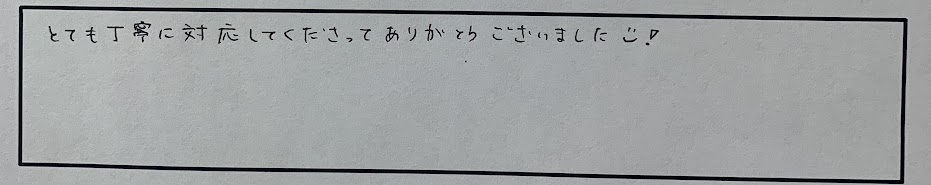 とても丁寧に対応してくださってありがとうございました☺!